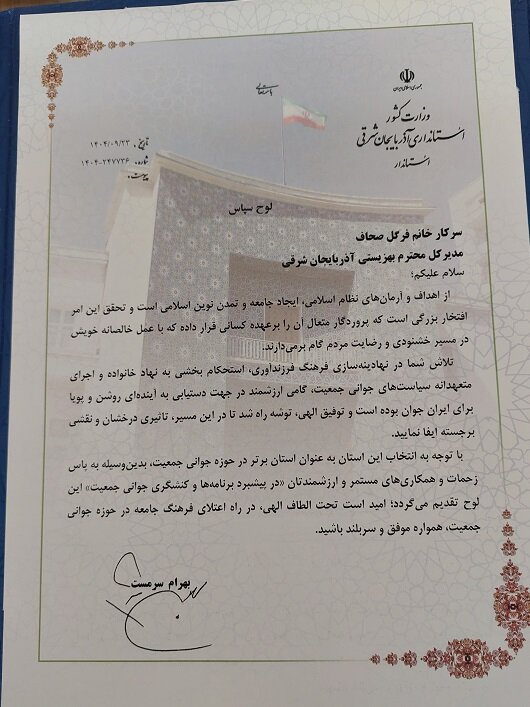 باسمه‌تعالی
جمهوری اسلامی ایران
وزارت کشور
استانداری آذربایجان شرقی
استاندار
تاریخ: ۱۴۰۴/۰۹/۲۳
شماره: ۱۴۰۴-۲۴۷۷۳۶
پیوست:
لوح سپاس
سرکار خانم فرگل صحاف
مدیرکل محترم بهزیستی آذربایجان شرقی
سلام علیکم؛
از اهداف و آرمان‌های نظام اسلامی، ایجاد جامعه و تمدن نوین اسلامی است و تحقق این امر
افتخار بزرگی است که پروردگار متعال آن را برعهده کسانی قرار داده که با عمل خالصانه خویش
در مسیر خشنودی و رضایت مردم گام برمی‌دارند.
تلاش شما در نهادینه‌سازی فرهنگ فرزندآوری، استحکام بخشی به نهاد خانواده و اجرای
متعهدانه سیاست‌های جوانی جمعیت، گامی ارزشمند در جهت دستیابی به آینده‌ای روشن و پویا
برای ایران جوان بوده است و توفیق الهی، توشه راه شد تا در این مسیر، تاثیری درخشان و نقشی
برجسته ایفا نمایید.
با توجه به انتخاب این استان به عنوان استان برتر در حوزه جوانی جمعیت، بدین‌وسیله به پاس
زحمات و همکاری‌های مستمر و ارزشمندتان «در پیشبرد برنامه‌ها و کنشگری جوانی جمعیت» این
لوح تقدیم می‌گردد؛ امید است تحت الطاف الهی، در راه اعتلای فرهنگ جامعه در حوزه جوانی
جمعیت، همواره موفق و سربلند باشید.
بهرام سرمست